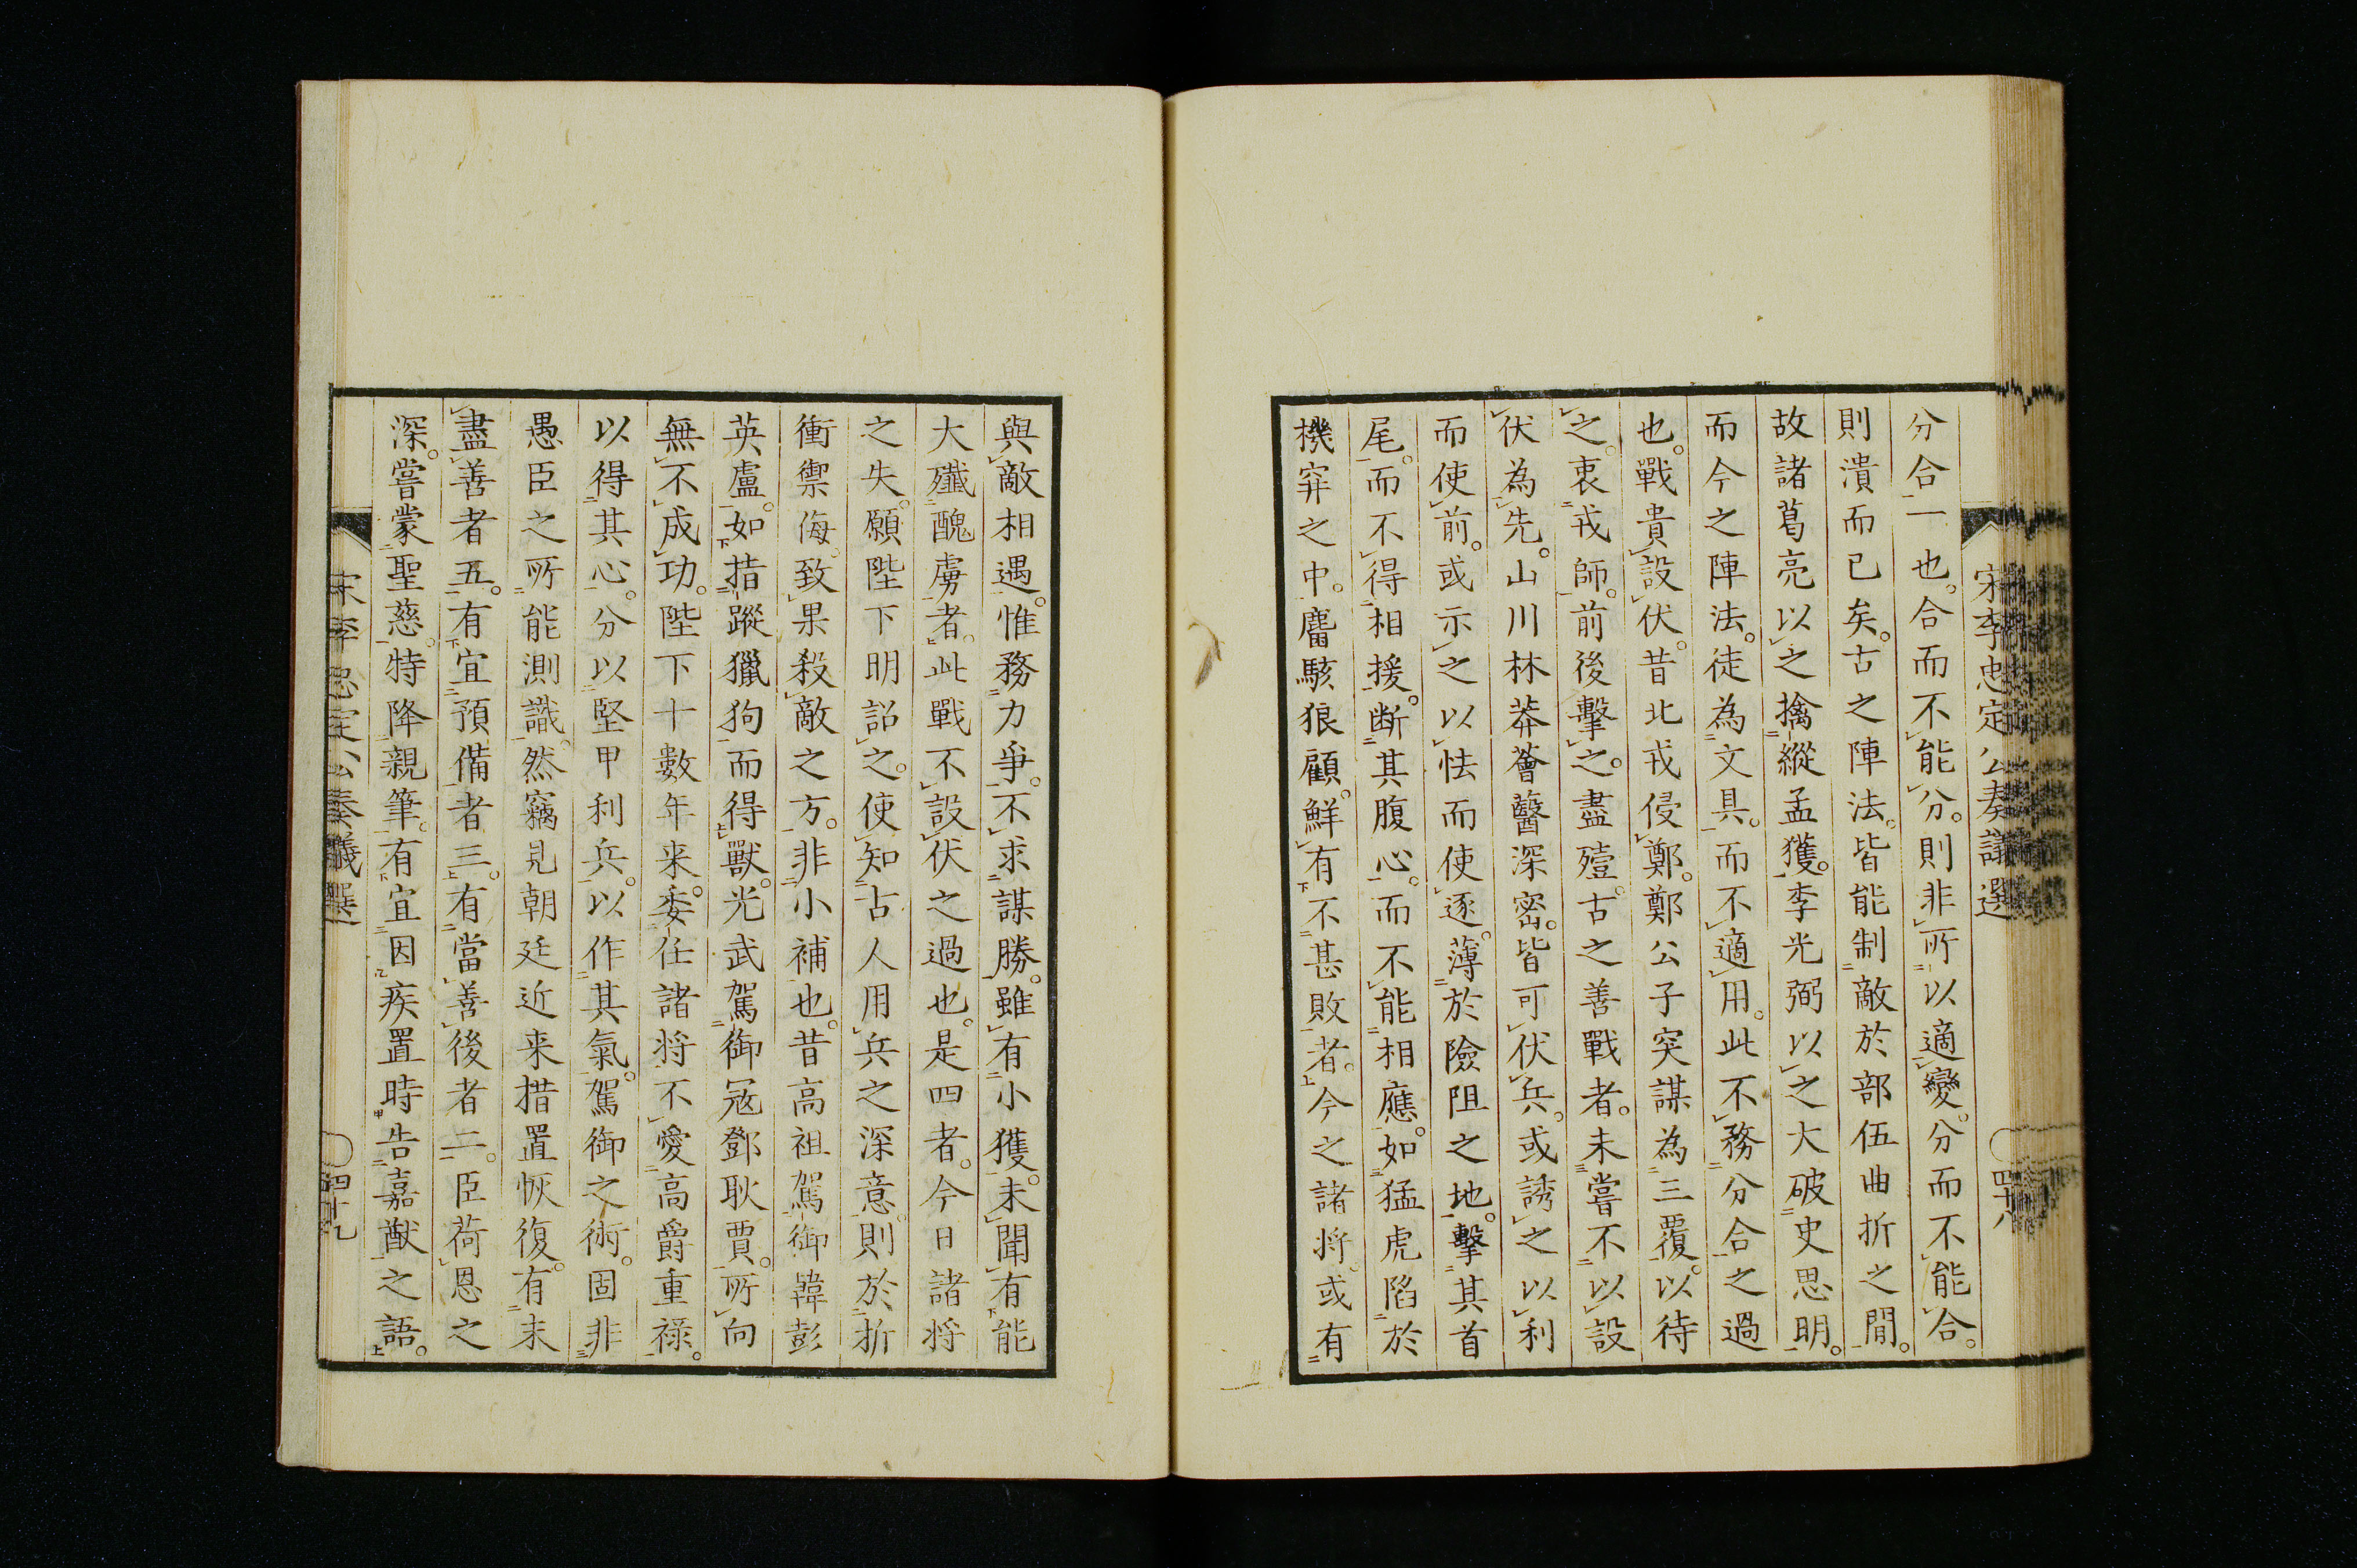 宋李忠定公奏議選 四十八
分合一也。合而不能分。則非所以適變。分而不能合。
則潰而已矣。古之陣法。皆能制敵於部伍曲折之間。
故諸葛亮以之擒縱孟獲。李光弼以之大破史思明。
而今之陣法。徒為文具。而不適用。此不務分合之過
也。戰貴設伏。昔北戎侵鄭。鄭公子突謀為三覆。以待
之。衷戎師。前後擊之。盡殪。古之善戰者。未嘗不以設
伏為先。山川林莽薈蘙深密。皆可伏兵。或誘之以利
而使前。或示之以怯而使逐。薄於險阻之地。擊其首
尾。而不得相援。断其腹心。而不能相應。如猛虎陷於
機穽之中。麕駭狼顧。鮮有不甚敗者。今之諸将。或有
與敵相遇。惟務力爭。不求謀勝。雖有小獲。未聞有能
大殲醜虜者。此戰不設伏之過也。是四者。今日諸将
之失。願陛下明詔之。使知古人用兵之深意。則於折
衝禦侮。致果殺敵之方。非小補也。昔高祖駕御韓彭
英盧。如指蹤獵狗而得獸。光武駕御冦鄧耿賈。所向
無不成功。陛下十數年来。委任諸将。不愛高爵重祿。
以得其心。分以堅甲利兵。以作其氣。駕御之術。固非
愚臣之所能測識。然竊見朝廷近来措置恢復。有未
盡善者五。有宜預備者三。有當善後者二。臣荷恩之
深。嘗蒙聖慈。特降親筆。有宜因疾置時告嘉猷之語。
宋李忠定公奏議選 四十九